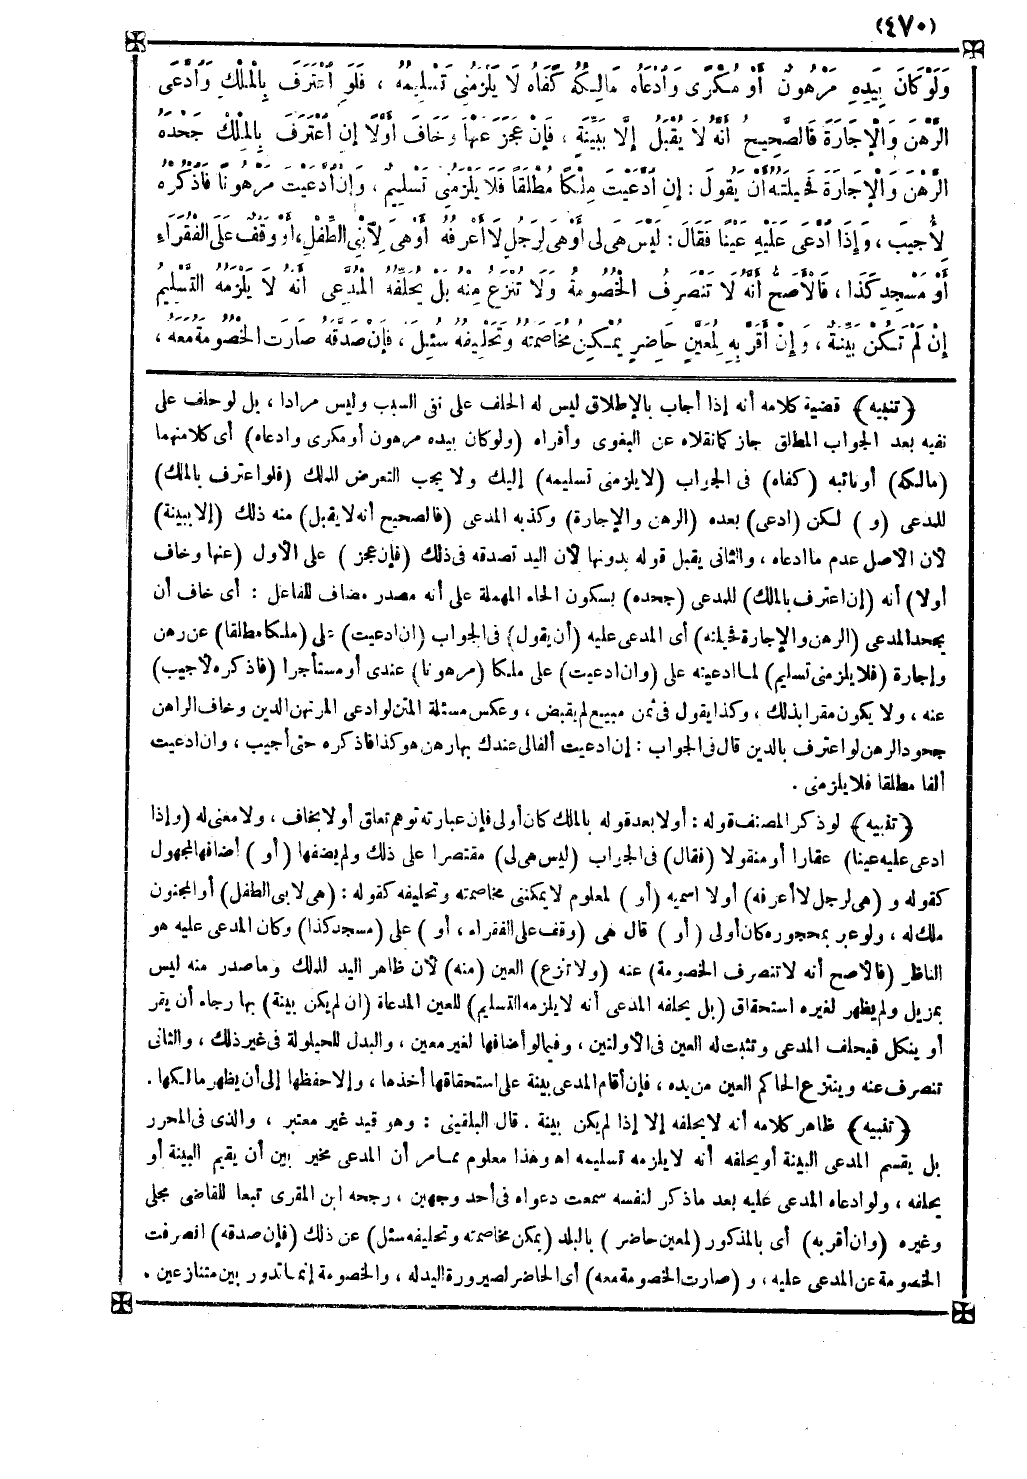 (٤٧٠)
وَلَوْ كَانَ بِيَدِهِ مَرْهُونٌ أَوْ مُكْرًى وَادَّعَاهُ مَالِكُهُ كَفَاهُ لَا يَلْزَمُنِي تَسْلِيمُهُ ، فَلَوِ اعْتَرَفَ بِالْمِلْكِ وَادَّعَى
الرَّهْنَ وَالْإِجَارَةَ فَالصَّحِيحُ أَنَّهُ لَا يُقْبَلُ إِلَّا بِبَيِّنَةٍ ، فَإِنْ عَجَزَ عَنْهَا وَخَافَ أَوَّلًا إِنِ اعْتَرَفَ بِالْمِلْكِ جَحْدَهُ
الرَّهْنَ وَالْإِجَارَةَ فَحِيلَتُهُ أَنْ يَقُولَ : إِنِ ادَّعَيْتَ مِلْكًا مُطْلَقًا فَلَا يَلْزَمُنِي تَسْلِيمٌ ، وَإِنِ ادَّعَيْتَ مَرْهُونًا فَاذْكُرْهُ
لِأُجِيبَ ، وَإِذَا ادَّعَى عَلَيْهِ عَيْنًا فَقَالَ : لَيْسَ هِيَ لِي أَوْ هِيَ لِرَجُلٍ لَا أَعْرِفُهُ أَوْ هِيَ لِابْنِي الطِّفْلِ ، أَوْ وَقْفٌ عَلَى الْفُقَرَاءِ
أَوْ مَسْجِدِ كَذَا ، فَالْأَصَحُّ أَنَّهُ لَا تَنْصَرِفُ الْخُصُومَةُ وَلَا تُنْزَعُ مِنْهُ بَلْ يُحَلِّفُهُ الْمُدَّعِي أَنَّهُ لَا يَلْزَمُهُ التَّسْلِيمُ
إِنْ لَمْ تَكُنْ بَيِّنَةٌ ، وَإِنْ أَقَرَّ بِهِ لِمُعَيَّنٍ حَاضِرٍ يُمْكِنُ مُخَاصَمَتُهُ وَتَحْلِيفُهُ سُئِلَ ، فَإِنْ صَدَّقَهُ صَارَتِ الْخُصُومَةُ مَعَهُ ،
﴿تنبيه﴾ قضية كلامه أنه إذا أجاب بالإطلاق ليس له الحلف على نفى السبب وليس مرادا ، بل لو حلف على
نفيه بعد الجواب المطلق جاز كما نقلاه عن البغوى وأقراه (ولو كان بيده مرهون أو مكرى وادعاه) أى كلا منهما
(مالكه) أو نائبه (كفاه) فى الجواب (لا يلزمنى تسليمه) إليك ولا يجب التعرض للملك (فلو اعترف بالملك)
للمدعى (و) لكن (ادعى) بعده (الرهن والإجارة) وكذبه المدعى (فالصحيح أنه لا يقبل) منه ذلك (إلا ببينة)
لأن الأصل عدم ما ادعاه ، والثانى يقبل قوله بدونها لأن اليد تصدقه فى ذلك (فإن عجز) على الأول (عنها وخاف
أولا) أنه (إن اعترف بالملك) للمدعى (جحده) بسكون الحاء المهملة على أنه مصدر مضاف للفاعل : أى خاف أن
يجحد المدعى (الرهن والإجارة فحيلته) أى المدعى عليه (أن يقول) فى الجواب (إن ادعيت) على (ملكا مطلقا) عن رهن
وإجارة (فلا يلزمنى تسليم) لما ادعيته على (وإن ادعيت) على ملكا (مرهونا) عندى أو مستأجرا (فاذكره لأجيب)
عنه ، ولا يكون مقرا بذلك ، وكذا يقول فى ثمن مبيع لم يقبض ، وعكس مسئلة المتن لو ادعى المرتهن الدين وخاف الراهن
جحود الرهن لو اعترف بالدين قال فى الجواب : إن ادعيت ألفا لى عندك بها رهن هو كذا فاذكره حتى أجيب ، وان ادعيت
ألفا مطلقا فلا يلزمنى .
﴿تنبيه﴾ لو ذكر المصنف قوله : أولا بعد قوله بالملك كان أولى فإن عبارته توهم تعلق أولا بخاف ، ولا معنى له (وإذا
ادعى عليه عينا) عقارا أو منقولا (فقال) فى الجواب (ليس هى لى) مقتصرا على ذلك ولم يضفها (أو) أضافها لمجهول
كقوله و (هى لرجل لا أعرفه) أو لا أسميه (أو) لمعلوم لا يمكننى مخاصمته وتحليفه كقوله : (هى لابنى الطفل) أو المجنون
ملك له ، ولو عبر بمحجوره كان أولى (أو) قال هى (وقف على الفقراء ، أو) على (مسجد كذا) وكان المدعى عليه هو
الناظر (فالأصح أنه لا تنصرف الخصومة) عنه (ولا تنزع) العين (منه) لأن ظاهر اليد للملك وما صدر منه ليس
بمزيل ولم يظهر لغيره استحقاق (بل يحلفه المدعى أنه لا يلزمه التسليم) للعين المدعاة (ان لم يكن بينة) بها رجاء أن يقر
أو ينكل فيحلف المدعى وتثبت له العين فى الأولتين ، وفيما لو أضافها لغير معين ، والبدل للحيلولة فى غير ذلك ، والثانى
تنصرف عنه وينتزع الحاكم العين من يده ، فإن أقام المدعى بينة على استحقاقها أخذها ، وإلا حفظها إلى أن يظهر مالكها .
﴿تنبيه﴾ ظاهر كلامه أنه لا يحلفه إلا إذا لم يكن بينة . قال البلقينى : وهو قيد غير معتبر ، والذى فى المحرر
بل يقسم المدعى البينة أو يحلفه أنه لا يلزمه تسليمه اه وهذا معلوم مما مر أن المدعى مخير بين أن يقيم البينة أو
يحلفه ، ولو ادعاه المدعى عليه بعد ما ذكر لنفسه سمعت دعواه فى أحد وجهين ، رجحه ابن المقرى تبعا للقاضى مجلى
وغيره (وان أقر به) أى بالمذكور (لمعين حاضر) بالبلد (يمكن مخاصمته وتحليفه سئل) عن ذلك (فإن صدقه) انصرفت
الخصومة عن المدعى عليه ، و (صارت الخصومة معه) أى الحاضر لصيرورة اليد له ، والخصومة إنما تدور بين متنازعين .